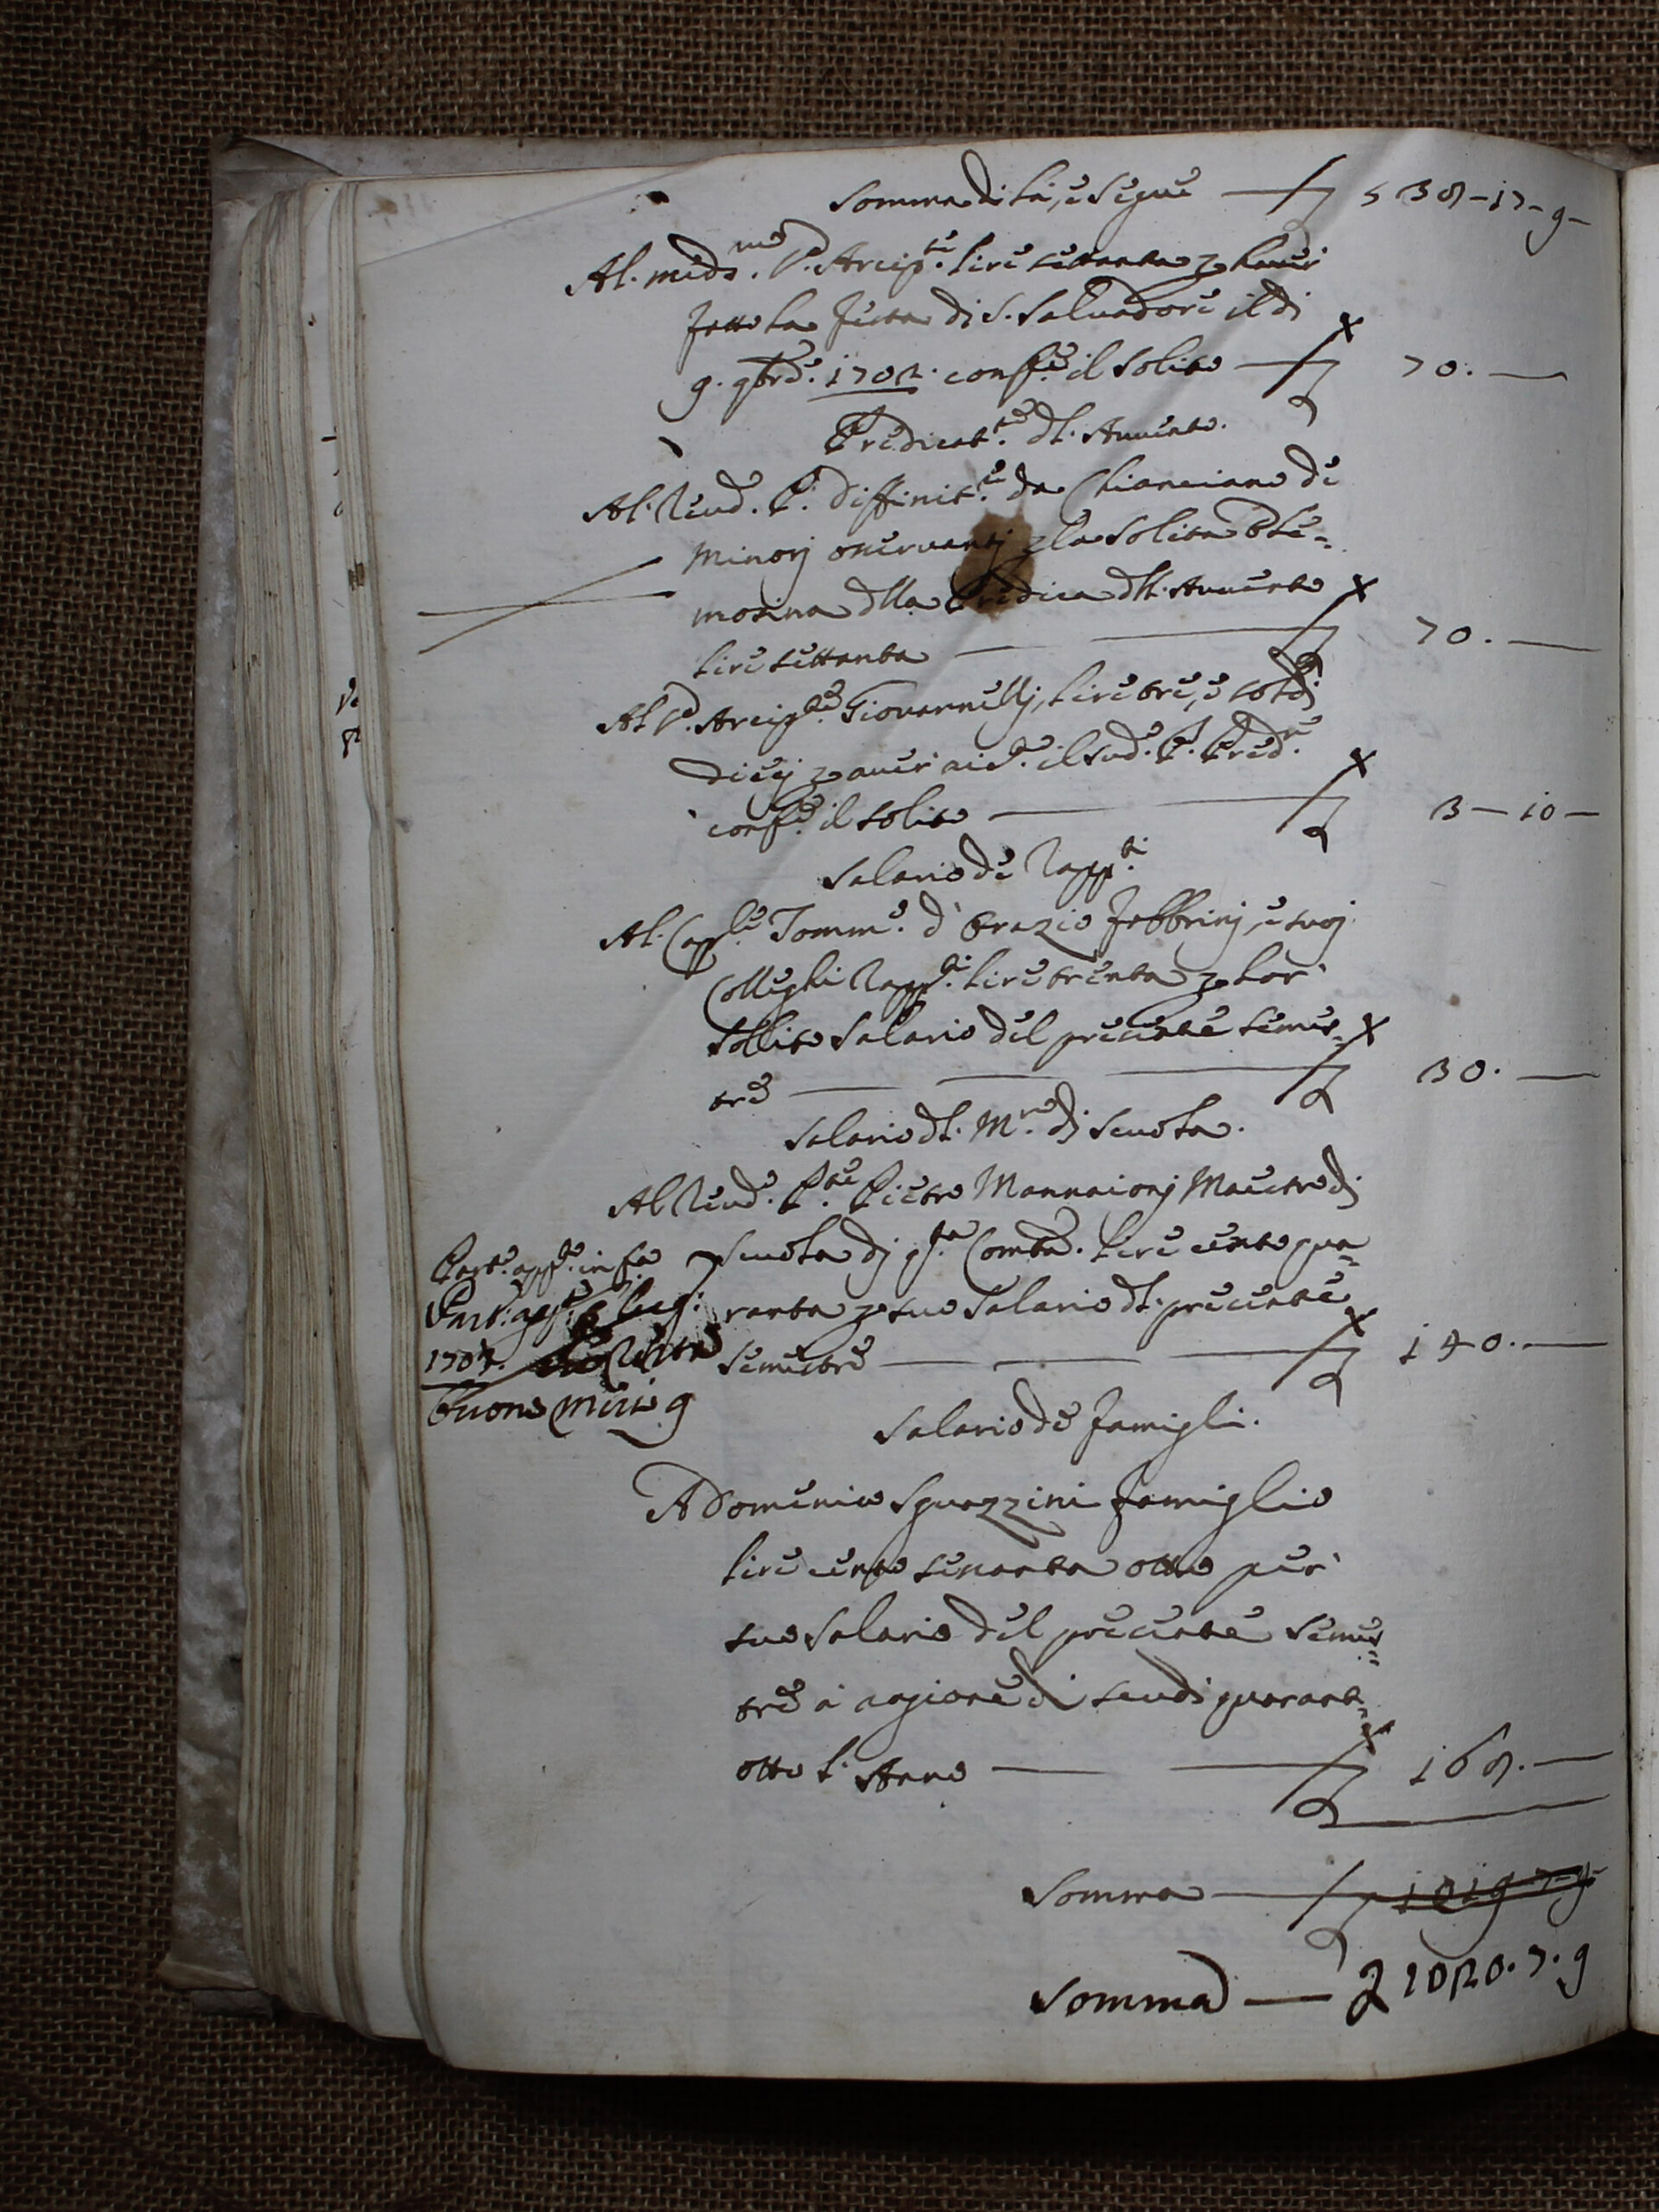 Somma di là, e segue — £ 538-17-9-
Al med.mo S.r Arcip.te lire settanta p haver
fatto la festa di S. Salvadore il dì
9. 9bre. 1702. conf.e il solito — £ 70. —
Predicat.re dl. Avvento.
Al Reud. P. Diffinit.re da Chianciano de
Minorj osservantj p la solita Ele=
mosina dlla Predica dll. Avvento
lire settanta — £ 70. —
Al S.r Arcip.te Giovannellj, lire tre, e soldj
diecj p aver aic.e il sud.o P. Pred.re
conf.e il solito — £ 3-10-
Salario de Rapp.ti
Al Cap.le Tomm.o d' Orazio Febbrinj, e suoj
Colleghi Rapp.ti lire trenta p lor
sollito Salario del presente semes=
tre — £ 30. —
Salario dl. M.ro dj Scuola.
Al Reud. P.te Pietro Mannaionj Maestro dj
Scuola dj q.sta Comtà. lire cento qua=
ranta p suo Salario dl. presente
Semestre — £ 140. —
Part. app.e in fa
Part. app.e lug:
1704.
buono mesi 9
Salario de famigli.
A Domenico Sguazzini famiglio
lire cento sessanta otto per
suo Salario del presente Semes=
tre a ragione di scudi quarant=
otto l. Anno — £ 168. —
Somma — £ 1019-7-9-
Somma — £ 1020. 7. 9